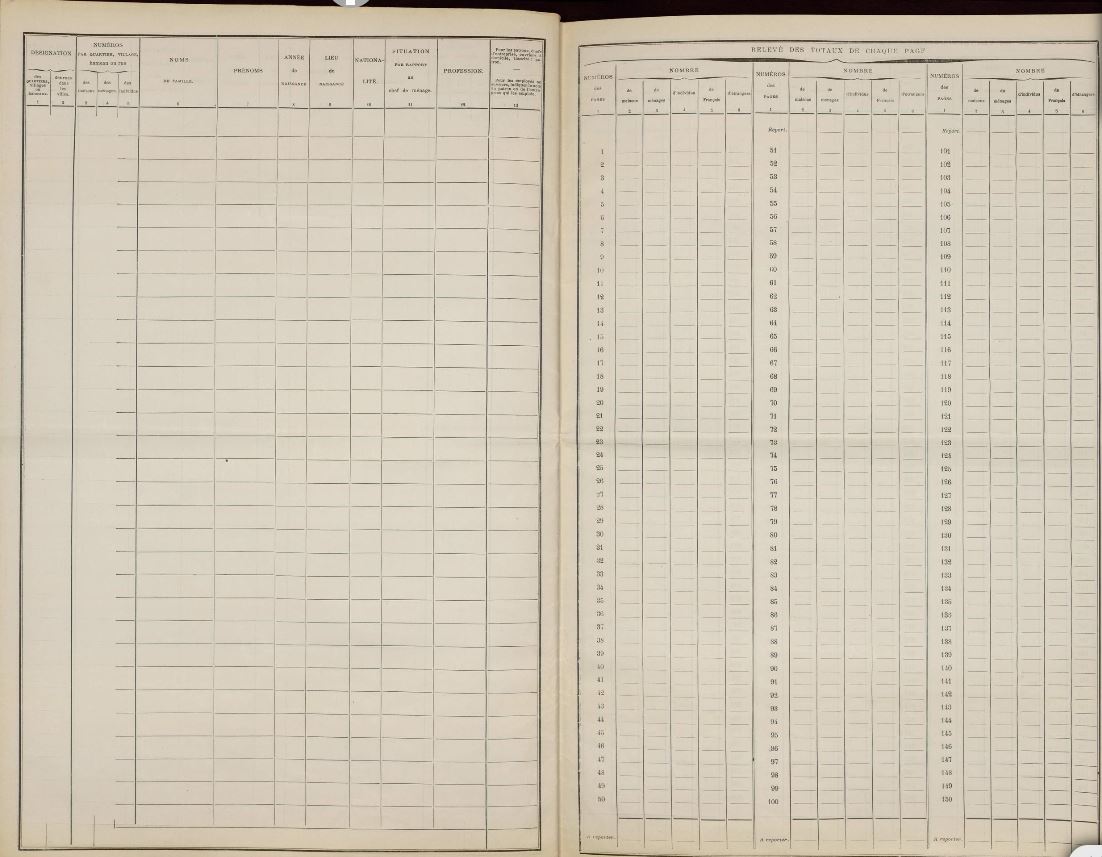 DÉSIGNATION
des quartiers, villages ou hameaux.
des rues dans les villes.
NUMÉROS
PAR QUARTIER, VILLAGE,
hameau ou rue
des maisons
des ménages
des individus
NOMS
DE FAMILLE.
PRÉNOMS
ANNÉE
de
NAISSANCE
LIEU
de
NAISSANCE
NATIONA-
LITÉ.
SITUATION
PAR RAPPORT
au
chef de ménage.
PROFESSION.
1 2 3 4 5 6
RELEVÉ DES TOTAUX DE CHAQUE PAGE
NUMÉROS
des
PAGES
NOMBRE
de maisons
de ménages
d'individus
de Français
d'étrangers
1 2 3 4 5 6
NUMÉROS
des
PAGES
NOMBRE
de maisons
de ménages
d'individus
de Français
d'étrangers
1 2 3 4 5 6
NUMÉROS
des
PAGES
NOMBRE
de maisons
de ménages
d'individus
de Français
d'étrangers
1 2 3 4 5 6
Report. Report.
1 51 101
2 52 102
3 53 103
4 54 104
5 55 105
6 56 106
7 57 107
8 58 108
9 59 109
10 60 110
11 61 111
12 62 112
13 63 113
14 64 114
15 65 115
16 66 116
17 67 117
18 68 118
19 69 119
20 70 120
21 71 121
22 72 122
23 73 123
24 74 124
25 75 125
26 76 126
27 77 127
28 78 128
29 79 129
30 80 130
31 81 131
32 82 132
33 83 133
34 84 134
35 85 135
36 86 136
37 87 137
38 88 138
39 89 139
40 90 140
41 91 141
42 92 142
43 93 143
44 94 144
45 95 145
46 96 146
47 97 147
48 98 148
49 99 149
50 100 150
A reporter. A reporter. A reporter.